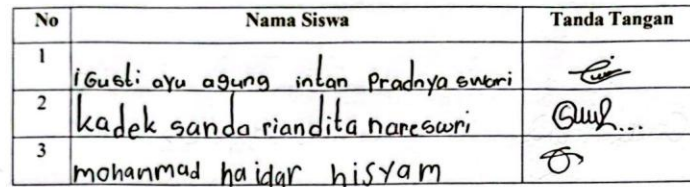 No Nama Siswa Tanda Tangan
1 iGusti ayu agung intan Pradnya swari
2 kadek sanda riandita nareswri
3 mohanmad haidar hisyam